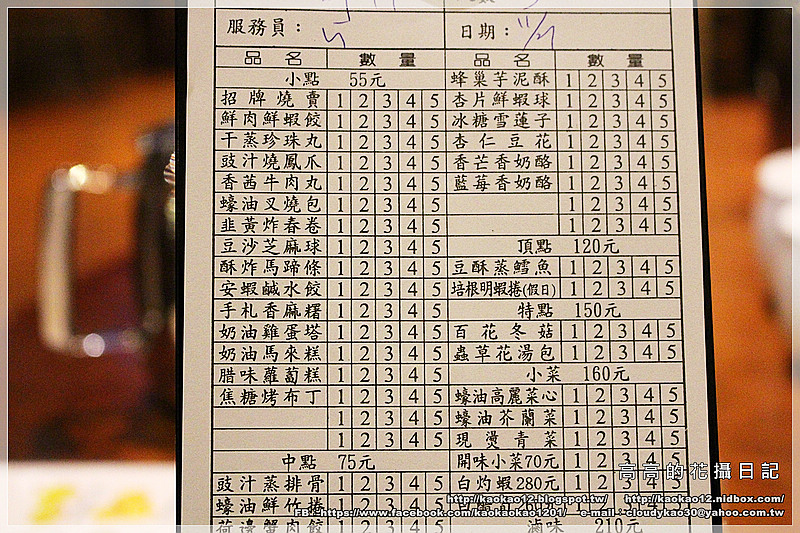 服務員：
日期： 11/27
品名 數量 品名 數量
小點 55元
招牌燒賣 1 2 3 4 5
鮮肉鮮蝦餃 1 2 3 4 5
干蒸珍珠丸 1 2 3 4 5
豉汁燒鳳爪 1 2 3 4 5
香茜牛肉丸 1 2 3 4 5
蠔油叉燒包 1 2 3 4 5
韭黃炸春卷 1 2 3 4 5
豆沙芝麻球 1 2 3 4 5
酥炸馬蹄條 1 2 3 4 5
安蝦鹹水餃 1 2 3 4 5
手札香麻糬 1 2 3 4 5
奶油雞蛋塔 1 2 3 4 5
奶油馬來糕 1 2 3 4 5
腊味蘿蔔糕 1 2 3 4 5
焦糖烤布丁 1 2 3 4 5
1 2 3 4 5
1 2 3 4 5
中點 75元
豉汁蒸排骨 1 2 3 4 5
蠔油鮮竹捲 1 2 3 4 5
荷邊蟹肉餃
蜂巢芋泥酥 1 2 3 4 5
杏片鮮蝦球 1 2 3 4 5
冰糖雪蓮子 1 2 3 4 5
杏仁豆花 1 2 3 4 5
香芒香奶酪 1 2 3 4 5
藍莓香奶酪 1 2 3 4 5
1 2 3 4 5
1 2 3 4 5
頂點 120元
豆酥蒸鱈魚 1 2 3 4 5
培根明蝦捲(假日) 1 2 3 4 5
特點 150元
百花冬菇 1 2 3 4 5
蟲草花湯包 1 2 3 4 5
小菜 160元
蠔油高麗菜心 1 2 3 4 5
蠔油芥蘭菜 1 2 3 4 5
現燙青菜 1 2 3 4 5
開味小菜70元 1 2 3 4 5
白灼蝦280元 1 2 3 4 5
滷味 210元
高高的花攝日記
http://kaokao12.blogspot.tw/ http://kaokao12.nidbox.com/
FB:https://www.facebook.com/kaokaokao1201/ e-mail:cloudykao30@yahoo.com.tw